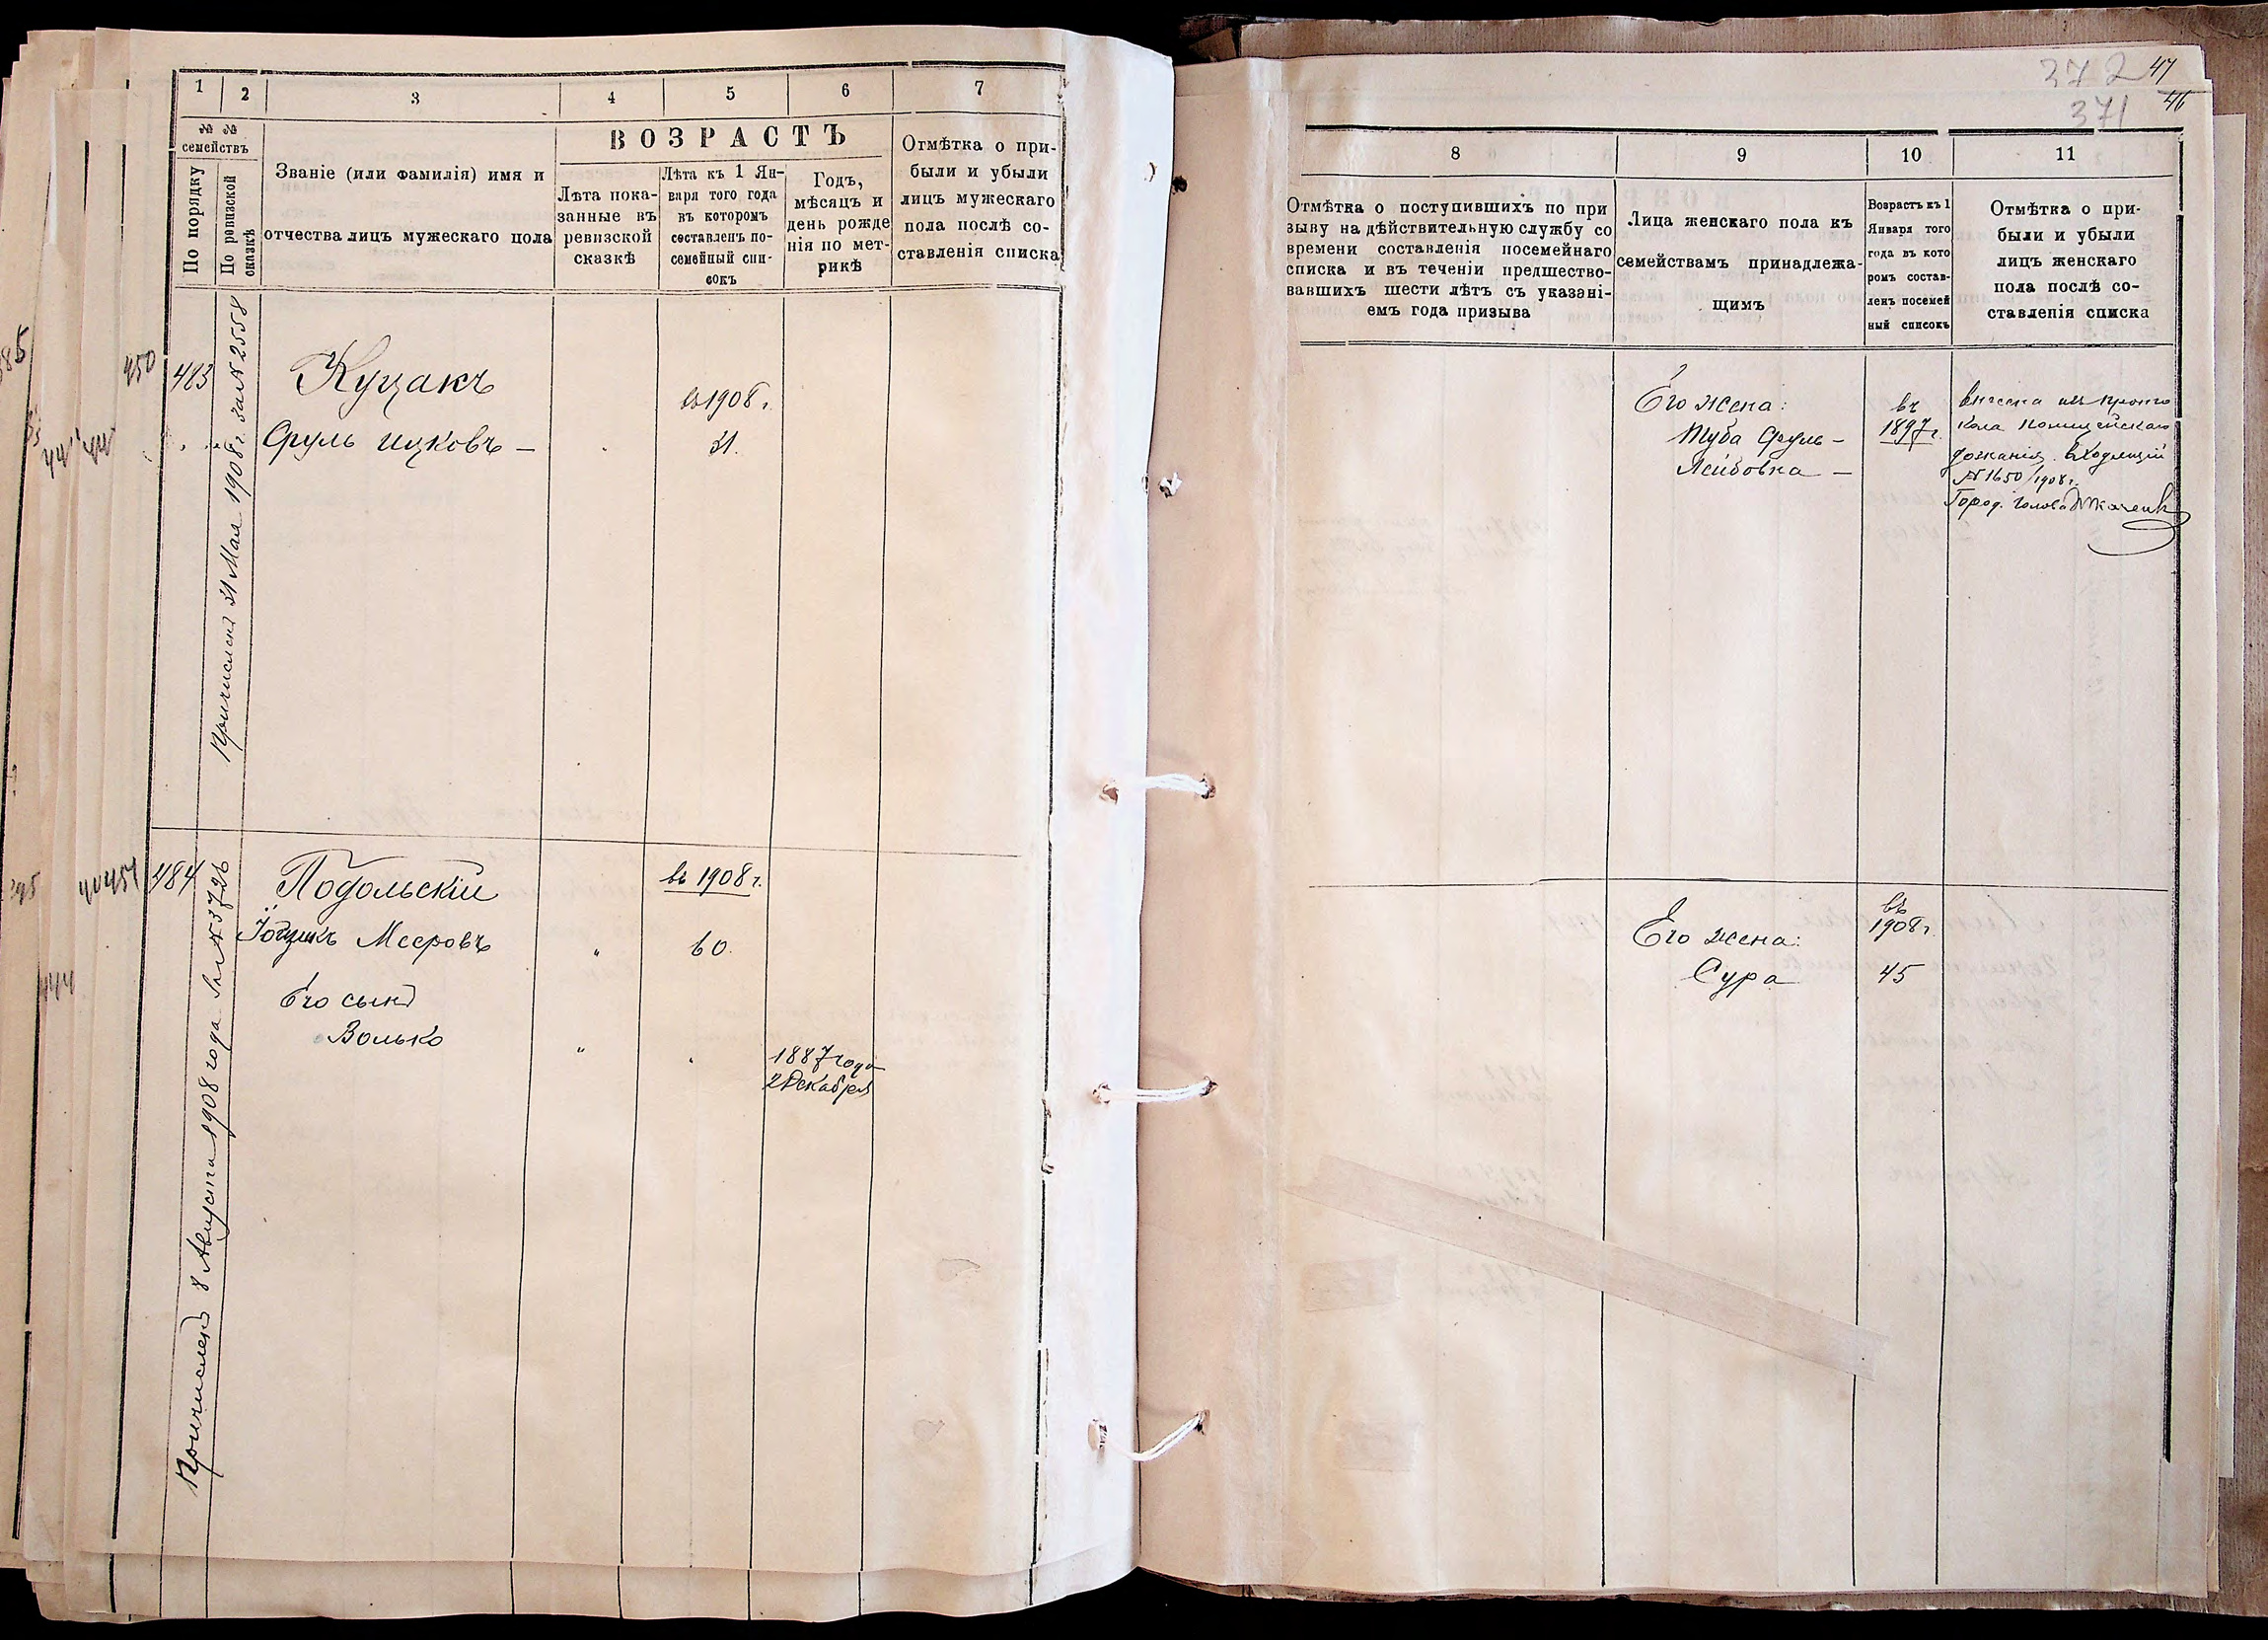 1
2
3
4
5
6
7
№ №
семействъ
По порядку
По ревизской
сказкѣ
Званіе (или фамилія) имя и
отчества лицъ мужескаго пола
ВОЗРАСТЪ
Лѣта пока-
занные въ
ревизской
сказкѣ
Лѣта къ 1 Ян-
варя того года
въ которомъ
составленъ по-
семейный спи-
сокъ
Годъ,
мѣсяцъ и
день рожде
нія по мет-
рикѣ
Отмѣтка о при-
были и убыли
лицъ мужескаго
пола послѣ со-
ставленія списка
450
483
Причисленъ 21 Мая 1908 г. за № 2558
Куцакъ
Сруль Ицковъ –
въ 1908 г.
21.
451
484
Причисленъ 8 Августа 1908 года за № 3726
Подольскій
Мееровъ
въ 1908 г.
"
60.
Его сынъ
Волько
"
1887 года
2 Декабря
372 47
371 46
8
9
10
11
Отмѣтка о поступившихъ по при
зыву на дѣйствительную службу со
времени составленія посемейнаго
списка и въ теченіи предшество-
вавшихъ шести лѣтъ съ указані-
емъ года призыва
Лица женскаго пола къ
семействамъ принадлежа-
щимъ
Возрастъ къ 1
Января того
года въ кото
ромъ состав-
ленъ посемей
ный списокъ
Отмѣтка о при-
были и убыли
лицъ женскаго
пола послѣ со-
ставленія списка
Его жена:
Туба Сруль –
Лейбовна –
въ
1897 г.
внесена изъ прото
кола полицейскаго
дознанія входящій
№ 1650/1908 г.
Город. голова Ткаченко
Его жена:
Сура
въ
1908 г.
45